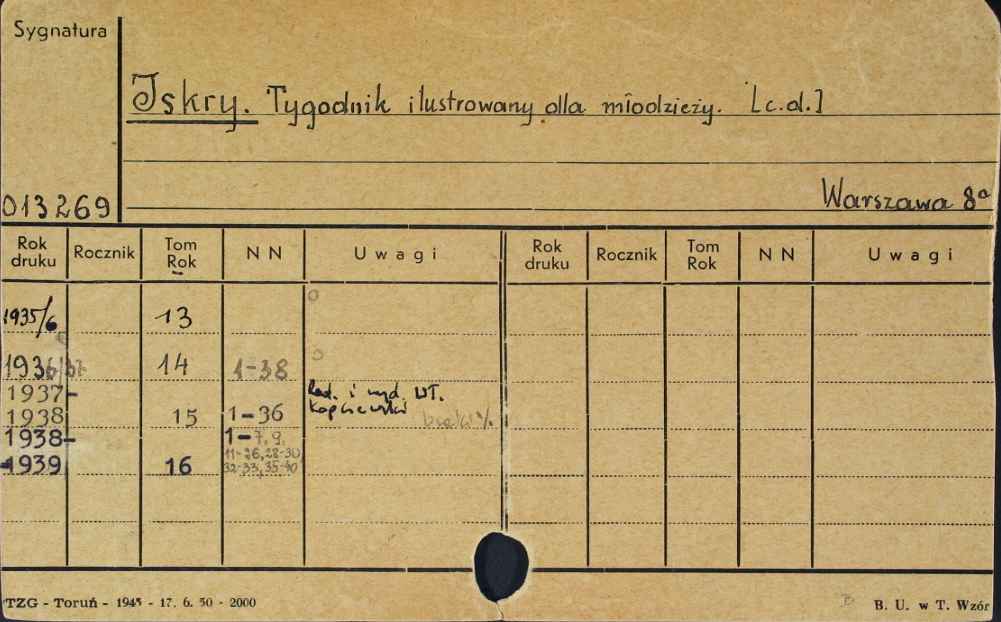 Sygnatura
Iskry. Tygodnik ilustrowany dla młodzieży. [c.d.]
013269
Warszawa 8°
Rok druku Rocznik Tom Rok N N Uwagi Rok druku Rocznik Tom Rok N N Uwagi
1935/6 13
1936/37 14 1-38
1937- Red. i wyd. WT.
1938 15 1-36 Kopczewski
1938- 1-7, 9,
11-26, 28-30
1939 16 32-33, 35-40
TZG - Toruń - 1945 - 17. 6. 50 - 2000
B. U. w T. Wzór